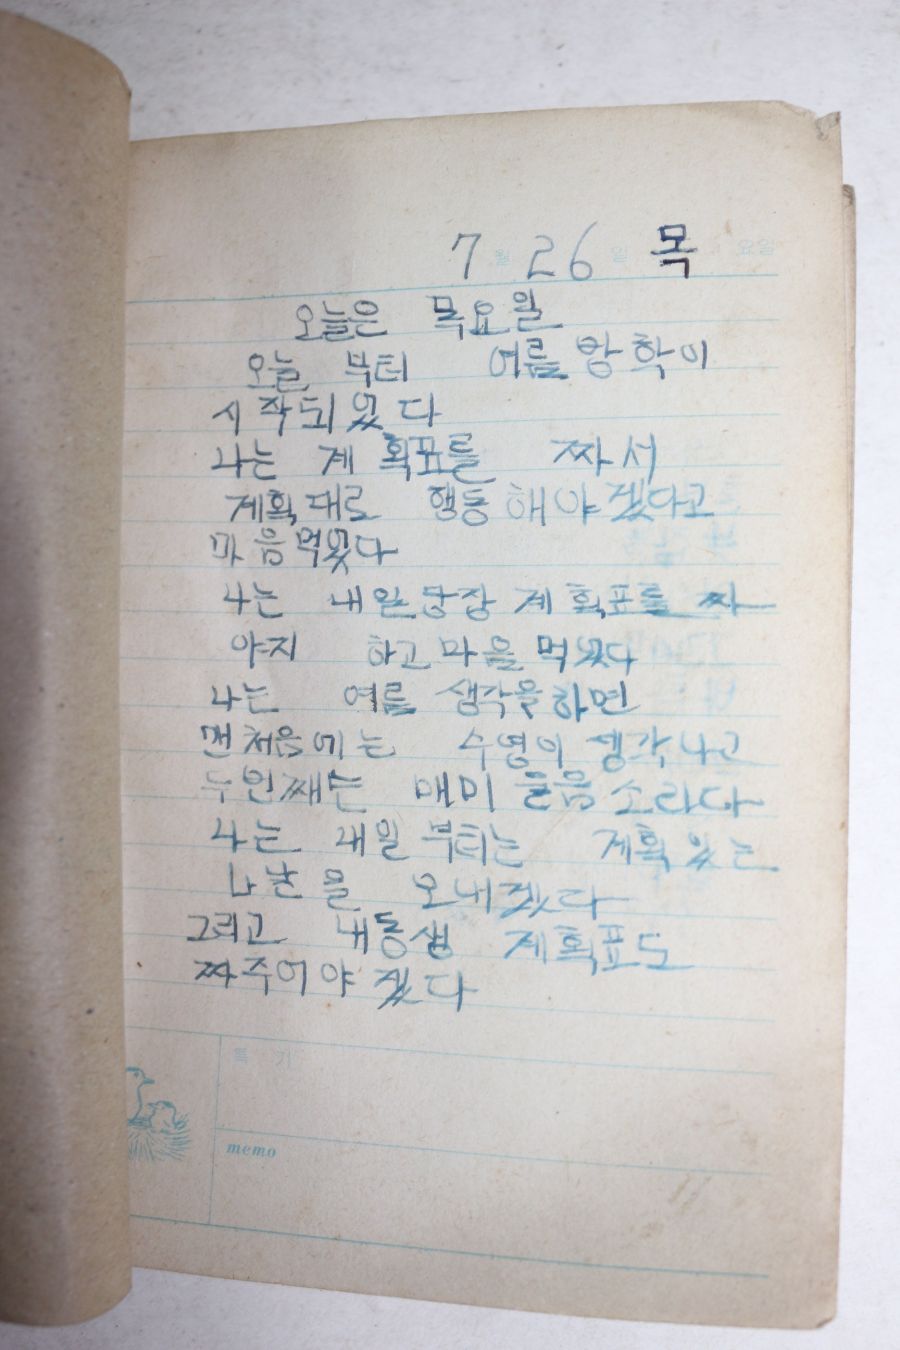 7월 26일 목 요일
오늘은 목요일
오늘 부터 여름 방학이
시작되었다
나는 계획표를 짜서
계획대로 행동해야겠다고
마음먹었다
나는 내일당장 계획표를 짜
야지 하고 마음 먹었다
나는 여름 생각을하면
맨처음에는 수영이 생각나고
두번째는 매미 울음 소리다
나는 내일 부터는 계획있는
나날을 보내겠다
그리고 내동생 계획표도
짜주어야겠다
특기
memo